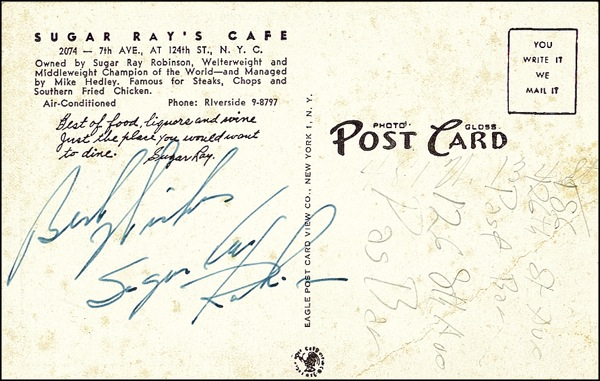 SUGAR RAY'S CAFE
2074 — 7th AVE., AT 124th ST., N. Y. C.
Owned by Sugar Ray Robinson, Welterweight and
Middleweight Champion of the World—and Managed
by Mike Hedley. Famous for Steaks, Chops and
Southern Fried Chicken.
Air-Conditioned Phone: RIverside 9-8797
Best of food, liquers and wine
Just the place you would want
to dine. Sugar Ray.
Best Wishes
Sugar Ray
Robinson
EAGLE POST CARD VIEW CO., NEW YORK 1, N. Y.
PHOTO GLOSS
POST CARD
YOU
WRITE IT
WE
MAIL IT
126
Bar